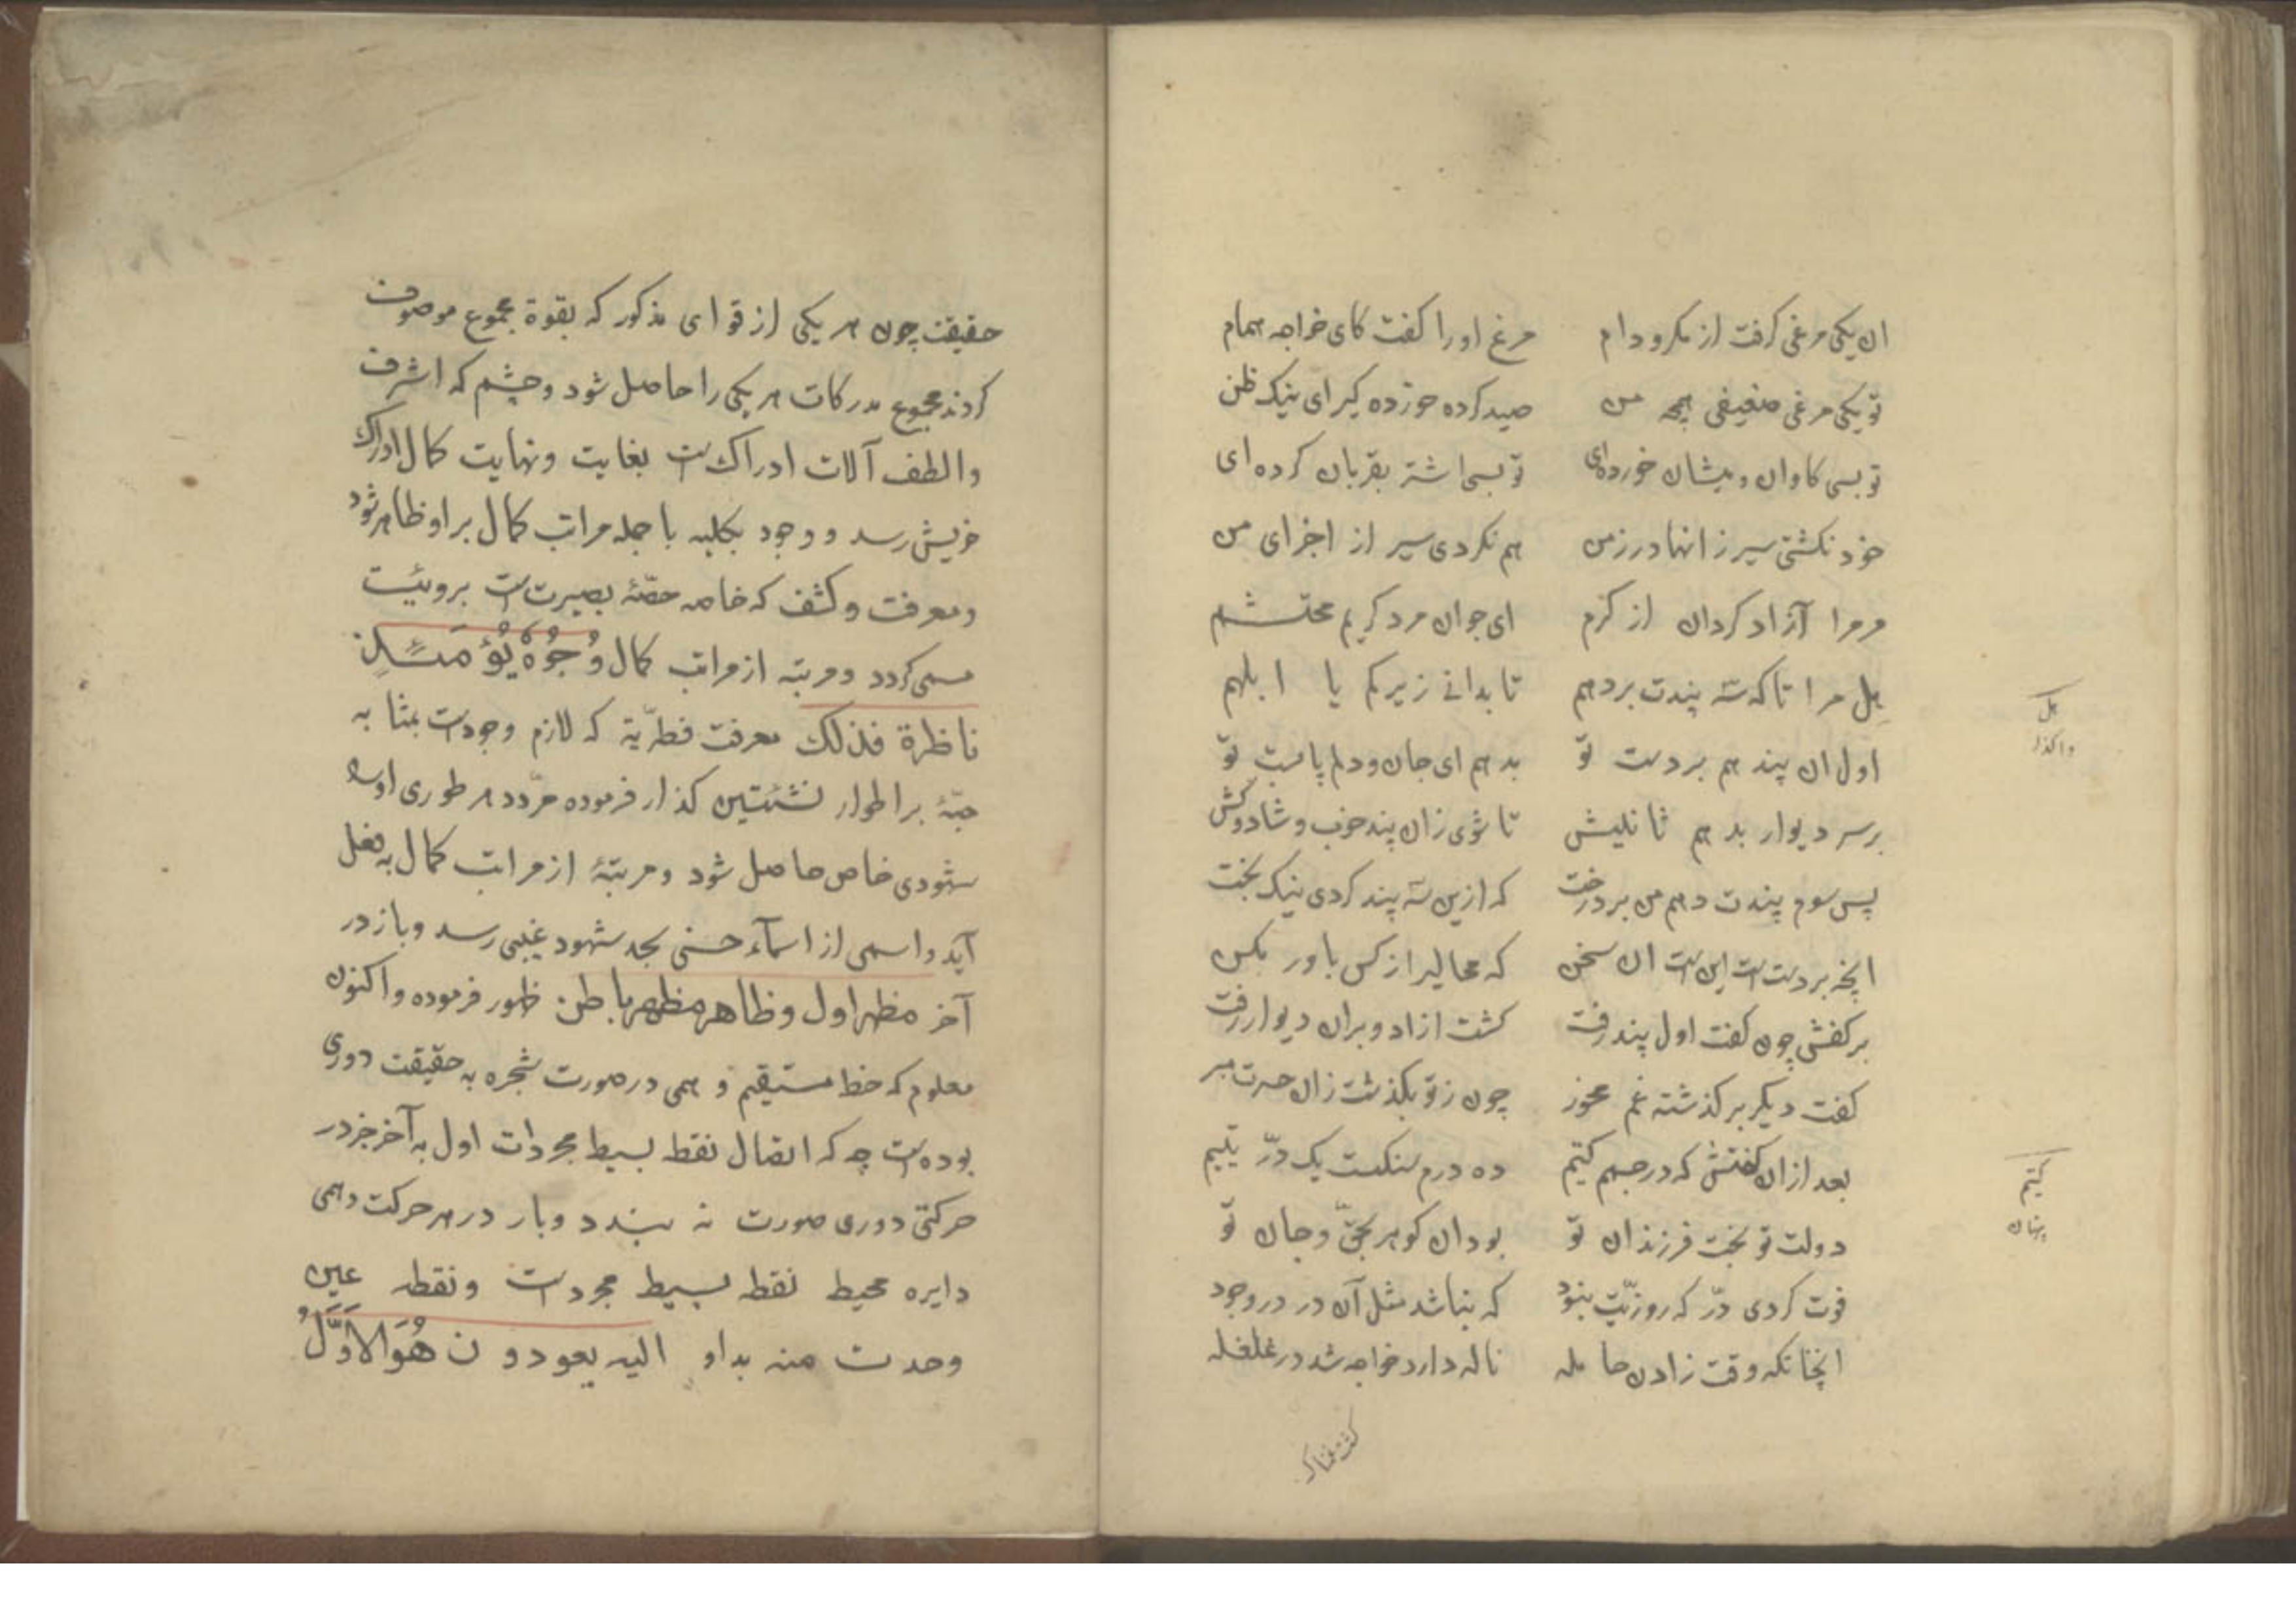 ان یکی مرغی کرفت از مکر و دام مرغ اورا کفت کای خواجه همام
تو یکی مرغی ضعیفی همچه من صید کرده خورده کیر ای نیک ظن
تو بسی کاوان و میشان خورده‌ای تو بسی اشتر بقربان کرده ای
خود نکشتی سیر زانها در زمن هم نکردی سیر از اجزای من
مر مرا آزاد کردان از کرم ای جوان مرد کریم محتشم
هل مرا تا که سه پندت بر دهم تا بدانی زیرکم یا ابلهم
هل
واکذار
اول ان پند هم بر دست تو بدهم ای جان و دلم پابست تو
بر سر دیوار بدهم ثانیش تا شوی زان پند خوب و شاد و کش
پس سوم پندت دهم من بر درخت که ازین سه پند کردی نیک بخت
انچه بر دست است این است ان سخن که محالیرا ز کس باور مکن
بر کفش چون کفت اول پند رفت کشت ازاد و بران دیوار رفت
کفت دیکر بر کذشته غم مخور چون ز تو بکذشت زان حسرت مبر
بعد ازان کفتش که در جسم کتیم ده درم سنکست یک درّ یتیم
کتیم
پنهان
دولت تو بخت فرزندان تو بود ان کوهر بحقّ و جان تو
فوت کردی درّ که روزیّت نبود که نباشد مثل آن در در وجود
انچنانکه وقت زادن حامله ناله دارد خواجه شد در غلغله
حقیقت چون هر یکی از قوای مذکور که بقوة مجموع موصوف
کردند مجموع مدرکات هر یکی را حاصل شود و چشم که اشرف
و الطف آلات ادراک است بغایت و نهایت کمال ادراک
خویش رسد و وجود بکلیه با جمله مراتب کمال بر او ظاهر شود
و معرفت و کشف که خاصه حصّهٔ بصیرت است برویت
مسمی کردد و مرتبه از مراتب کمال وُجُوهٌ یَوْمَئِذٍ
ناظرة فذلک معرفت فطریّة که لازم وجودست بمثابه
حبّهٔ بر اطوار نشئتین کذار فرموده مرّ در هر طوری اورا
شهودی خاص حاصل شود و مرتبهٔ از مراتب کمال به فعل
آید و اسمی از اسمآء حسنی بحد شهود غیبی رسد و باز در
آخر مظهر اول و ظاهر مظهر باطن ظهور فرموده و اکنون
معلوم که خط مستقیم و همی در صورت شجره به حقیقت دوری
بوده است چه که اتصال نقط بسیط مجردات اول به آخر جز در
حرکتی دوری صورت نه بندد و بار در هر حرکت وهمی
دایره محیط نقطه بسیط مجردست و نقطه عین
وحدت منه بداو الیه یعودون هُوَ الاَوَّلُ